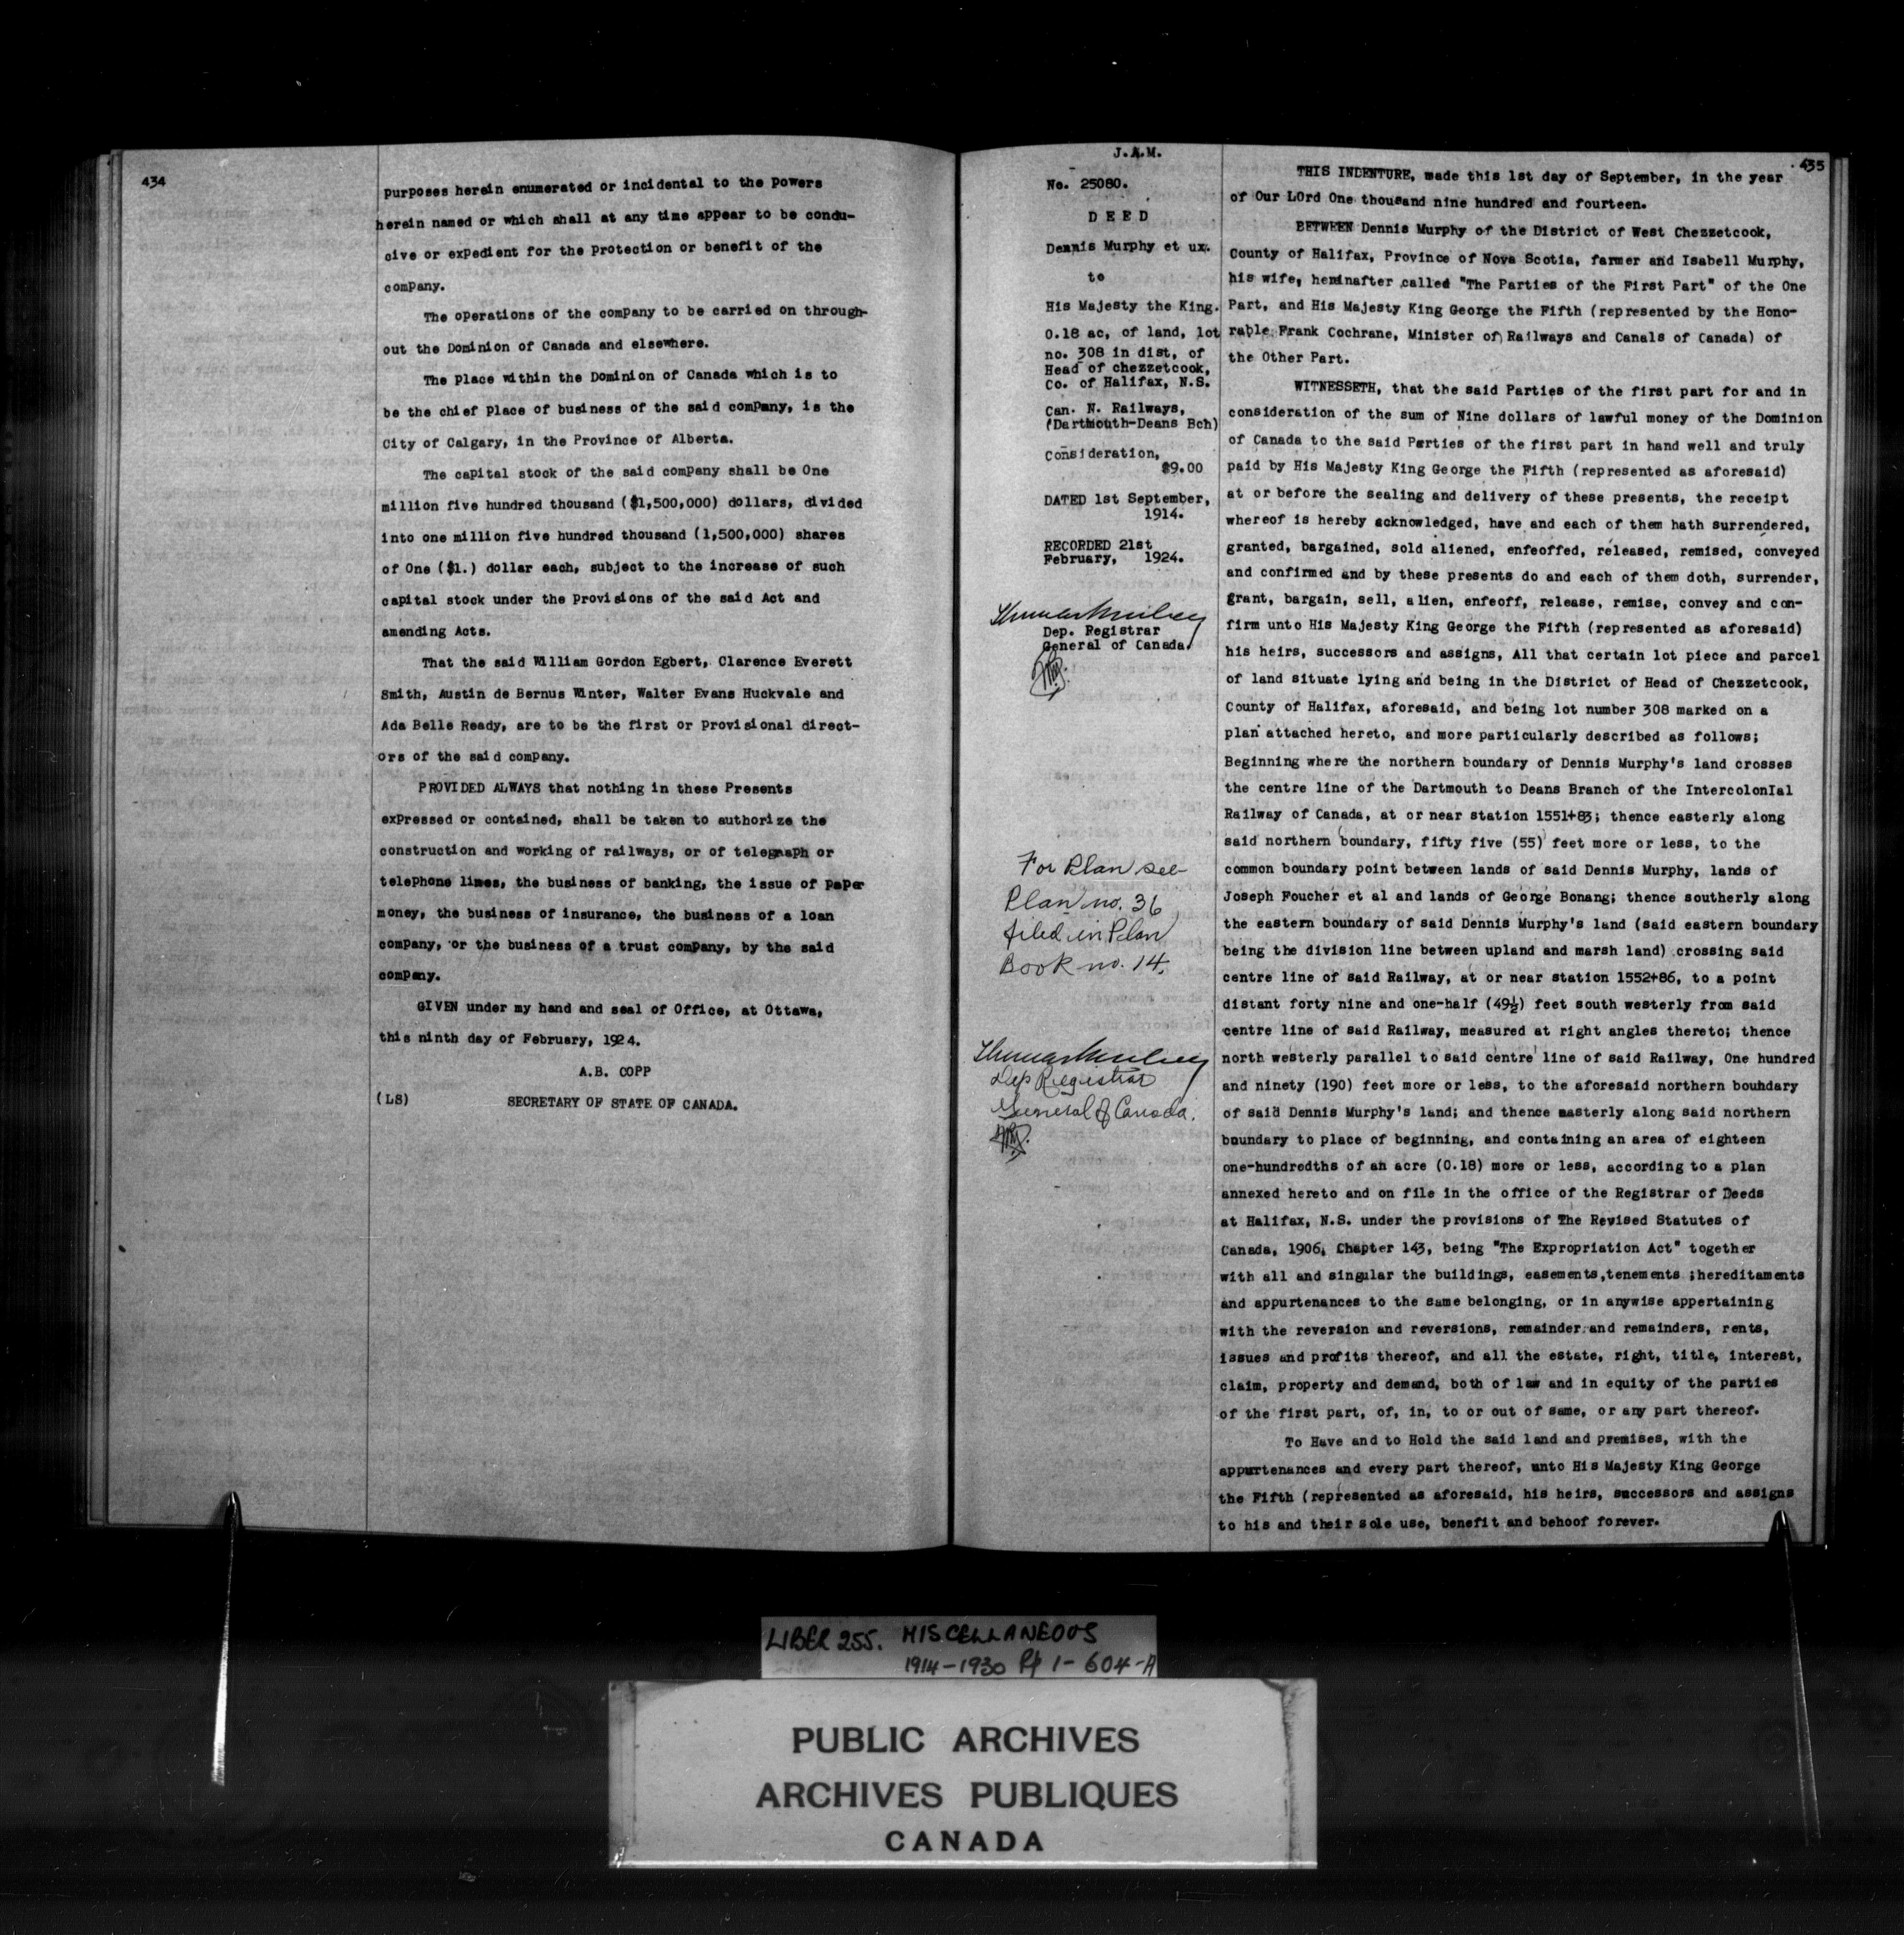 434
purposes herein enumerated or incidental to the powers
herein named or which shall at any time appear to be condu-
cive or expedient for the protection or benefit of the
company.
The operations of the company to be carried on through-
out the Dominion of Canada and elsewhere.
The place within the Dominion of Canada which is to
be the chief place of business of the said company, is the
City of Calgary, in the Province of Alberta.
The capital stock of the said company shall be One
million five hundred thousand ($1,500,000) dollars, divided
into one million five hundred thousand (1,500,000) shares
of One ($1.) dollar each, subject to the increase of such
capital stock under the provisions of the said Act and
amending Acts.
That the said William Gordon Egbert, Clarence Everett
Smith, Austin de Bernus Winter, Walter Evans Huckvale and
Ada Belle Ready, are to be the first or provisional direct-
ors of the said company.
PROVIDED ALWAYS that nothing in these Presents
expressed or contained, shall be taken to authorize the
construction and working of railways, or of telegraph or
telephone lines, the business of banking, the issue of paper
money, the business of insurance, the business of a loan
company, or the business of a trust company, by the said
company.
GIVEN under my hand and seal of Office, at Ottawa,
this ninth day of February, 1924.
A.B. COPP
(LS) SECRETARY OF STATE OF CANADA.
J.A.M.
No. 25080.
DEED
Dennis Murphy et ux.
to
His Majesty the King.
0.18 ac, of land, lot
no. 308 in dist, of
Head of chezzetcook,
Co. of Halifax, N.S.
Can. N. Railways,
(Dartmouth-Deans Bch)
Consideration,
$9.00
DATED 1st September,
1914.
RECORDED 21st
February, 1924.
Thomas Mulvey
Dep. Registrar
General of Canada.
For Plan see
Plan no. 36
filed in Plan
Book no. 14.
Thomas Mulvey
Dep Registrar
General of Canada.
435
THIS INDENTURE, made this 1st day of September, in the year
of Our LOrd One thousand nine hundred and fourteen.
BETWEEN Dennis Murphy of the District of West Chezzetcook,
County of Halifax, Province of Nova Scotia, farmer and Isabell Murphy,
his wife, hereinafter called "The Parties of the First Part" of the One
Part, and His Majesty King George the Fifth (represented by the Hono-
rable Frank Cochrane, Minister of Railways and Canals of Canada) of
the Other Part.
WITNESSETH, that the said Parties of the first part for and in
consideration of the sum of Nine dollars of lawful money of the Dominion
of Canada to the said Parties of the first part in hand well and truly
paid by His Majesty King George the Fifth (represented as aforesaid)
at or before the sealing and delivery of these presents, the receipt
whereof is hereby acknowledged, have and each of them hath surrendered,
granted, bargained, sold aliened, enfeoffed, released, remised, conveyed
and confirmed and by these presents do and each of them doth, surrender,
grant, bargain, sell, alien, enfeoff, release, remise, convey and con-
firm unto His Majesty King George the Fifth (represented as aforesaid)
his heirs, successors and assigns, All that certain lot piece and parcel
of land situate lying and being in the District of Head of Chezzetcook,
County of Halifax, aforesaid, and being lot number 308 marked on a
plan attached hereto, and more particularly described as follows;
Beginning where the northern boundary of Dennis Murphy's land crosses
the centre line of the Dartmouth to Deans Branch of the IntercolonIal
Railway of Canada, at or near station 1551+83; thence easterly along
said northern boundary, fifty five (55) feet more or less, to the
common boundary point between lands of said Dennis Murphy, lands of
Joseph Foucher et al and lands of George Bonang; thence southerly along
the eastern boundary of said Dennis Murphy's land (said eastern boundary
being the division line between upland and marsh land) crossing said
centre line of said Railway, at or near station 1552+86, to a point
distant forty nine and one-half (49½) feet south westerly from said
centre line of said Railway, measured at right angles thereto; thence
north westerly parallel to said centre line of said Railway, One hundred
and ninety (190) feet more or less, to the aforesaid northern bouhdary
of said Dennis Murphy's land; and thence easterly along said northern
boundary to place of beginning, and containing an area of eighteen
one-hundredths of an acre (0.18) more or less, according to a plan
annexed hereto and on file in the office of the Registrar of Deeds
at Halifax, N.S. under the provisions of The Revised Statutes of
Canada, 1906, Chapter 143, being "The Expropriation Act" together
with all and singular the buildings, easements,tenements ;hereditaments
and appurtenances to the same belonging, or in anywise appertaining
with the reversion and reversions, remainder and remainders, rents,
issues and profits thereof, and all the estate, right, title, interest,
claim, property and demand, both of law and in equity of the parties
of the first part, of, in, to or out of same, or any part thereof.
To Have and to Hold the said land and premises, with the
appurtenances and every part thereof, unto His Majesty King George
the Fifth (represented as aforesaid, his heirs, successors and assigns
to his and their sole use, benefit and behoof forever.
LIBER 255. MISCELLANEOUS
1914-1930 Pp 1-604-A
PUBLIC ARCHIVES
ARCHIVES PUBLIQUES
CANADA